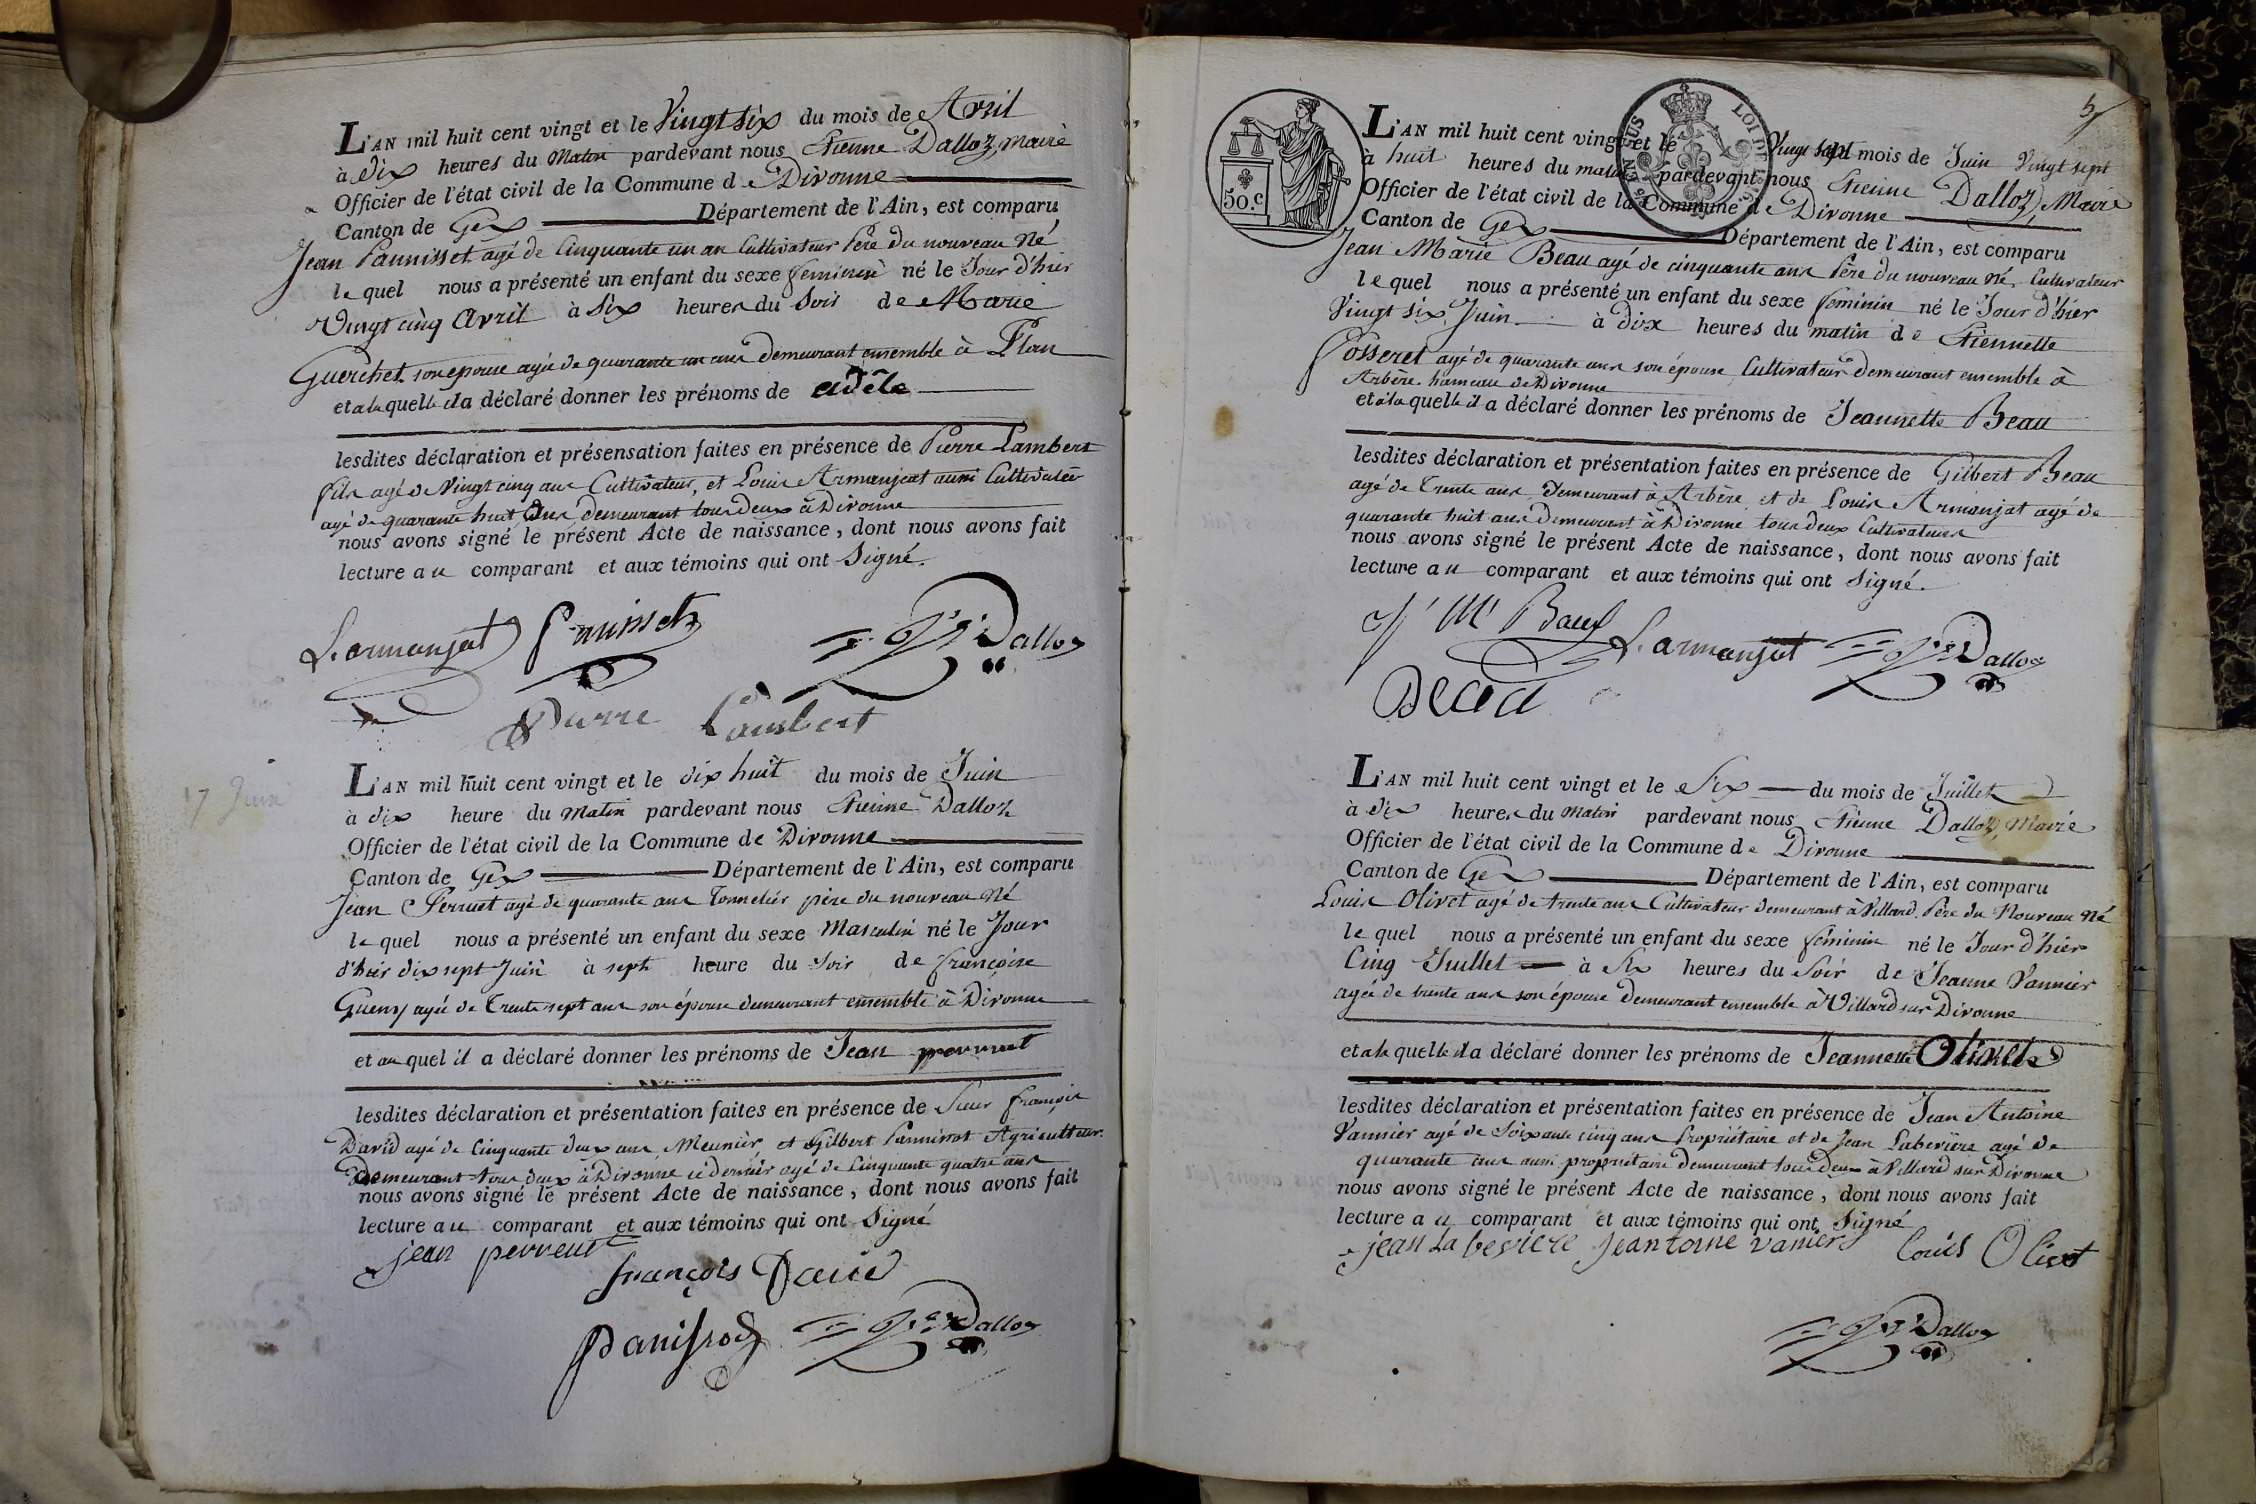 L'AN mil huit cent vingt et le Vingt six du mois de Avril
à dix heures du Matin pardevant nous Etienne Dalloz, Maire
Officier de l'état civil de la Commune de Divonne
Canton de Gex Département de l'Ain, est comparu
Jean Pannisset agé de Cinquante un an Cultivateur Père du nouveau Né
le quel nous a présenté un enfant du sexe feminin né le Jour d'hier
Vingt cinq Avril à Six heures du Soir de Marie
Guerchet son épouse agée de quarante un ans demeurant ensemble à Plan
et a la quelle il a déclaré donner les prénoms de adèle
lesdites déclaration et présensation faites en présence de Pierre Lambert
fils agé de Vingt cinq ans Cultivateur, et Louis Armanjeat aussi Cultivateur
agé de quarante huit Ans demeurant tous deux à Divonne
nous avons signé le présent Acte de naissance, dont nous avons fait
lecture au comparant et aux témoins qui ont Signé.
L. armanjat Panisset Dalloz
Pierre Lambert
17 Juin
L'AN mil huit cent vingt et le dix huit du mois de Juin
à dix heure du Matin pardevant nous Etienne Dalloz
Officier de l'état civil de la Commune de Divonne
Canton de Gex Département de l'Ain, est comparu
Jean Perruet agé de quarante ans Tonnelier père du nouveau Né
le quel nous a présenté un enfant du sexe Masculin né le Jour
d'hier dix sept Juin à sept heure du Soir de françoise
Gueny agée de Trente sept ans son épouse demeurant ensemble à Divonne
et au quel il a déclaré donner les prénoms de Jean perruet
lesdites déclaration et présentation faites en présence de Sieur françois
David agé de Cinquante deux ans Meunier, et Gilbert Pannissot Agriculteur
Demeurant tous deux à Divonne ce dernier agé de Cinquante quatre ans
nous avons signé le présent Acte de naissance, dont nous avons fait
lecture au comparant et aux témoins qui ont Signé
jean perruet
françois David
Panissod Dalloz
5
50.c
EN SUS
LOI DE
L'AN mil huit cent vingt et le Vingt sept du mois de Juin Vingt sept
à huit heures du matin pardevant nous Etienne Dalloz, Maire
Officier de l'état civil de la Commune de Divonne
Canton de Gex Département de l'Ain, est comparu
Jean Marie Beau agé de cinquante ans Père du nouveau Né, Cultivateur
le quel nous a présenté un enfant du sexe feminin né le Jour d'hier
Vingt six Juin à dix heures du matin de Etiennette
Posseret agé de quarante ans son épouse Cultivateur demeurant ensemble à
Arbère hameau de Divonne
et à la quelle il a déclaré donner les prénoms de Jeannette Beau
lesdites déclaration et présentation faites en présence de Gilbert Beau
agé de Trente ans, demeurant à Arbère et de Louis Armanjat agé de
quarante huit ans demeurant à Divonne tous deux Cultivateurs
nous avons signé le présent Acte de naissance, dont nous avons fait
lecture au comparant et aux témoins qui ont Signé.
J M Baux L. armanjat Dalloz
L'AN mil huit cent vingt et le Six du mois de Juillet
à dix heures du Matin pardevant nous Etienne Dalloz, Maire
Officier de l'état civil de la Commune de Divonne
Canton de Gex Département de l'Ain, est comparu
Louis Olivet agé de trente ans Cultivateur demeurant à Villard, Père du Nouveau Né
le quel nous a présenté un enfant du sexe féminin né le Jour d'hier
Cinq Juillet à Six heures du Soir de Jeanne Vannier
agée de trente ans son épouse demeurant ensemble à Villard sur Divonne
et a la quelle il a déclaré donner les prénoms de Jeannette Olivet
lesdites déclaration et présentation faites en présence de Jean Antoine
Vannier agé de Soixante cinq ans Propriétaire et de Jean Laberière agé de
quarante ans aussi propriétaire demeurant tous deux à Villard sur Divonne
nous avons signé le présent Acte de naissance, dont nous avons fait
lecture au comparant et aux témoins qui ont Signé
jean La beviere Jeantoine vanier Louis Olivet
Dalloz